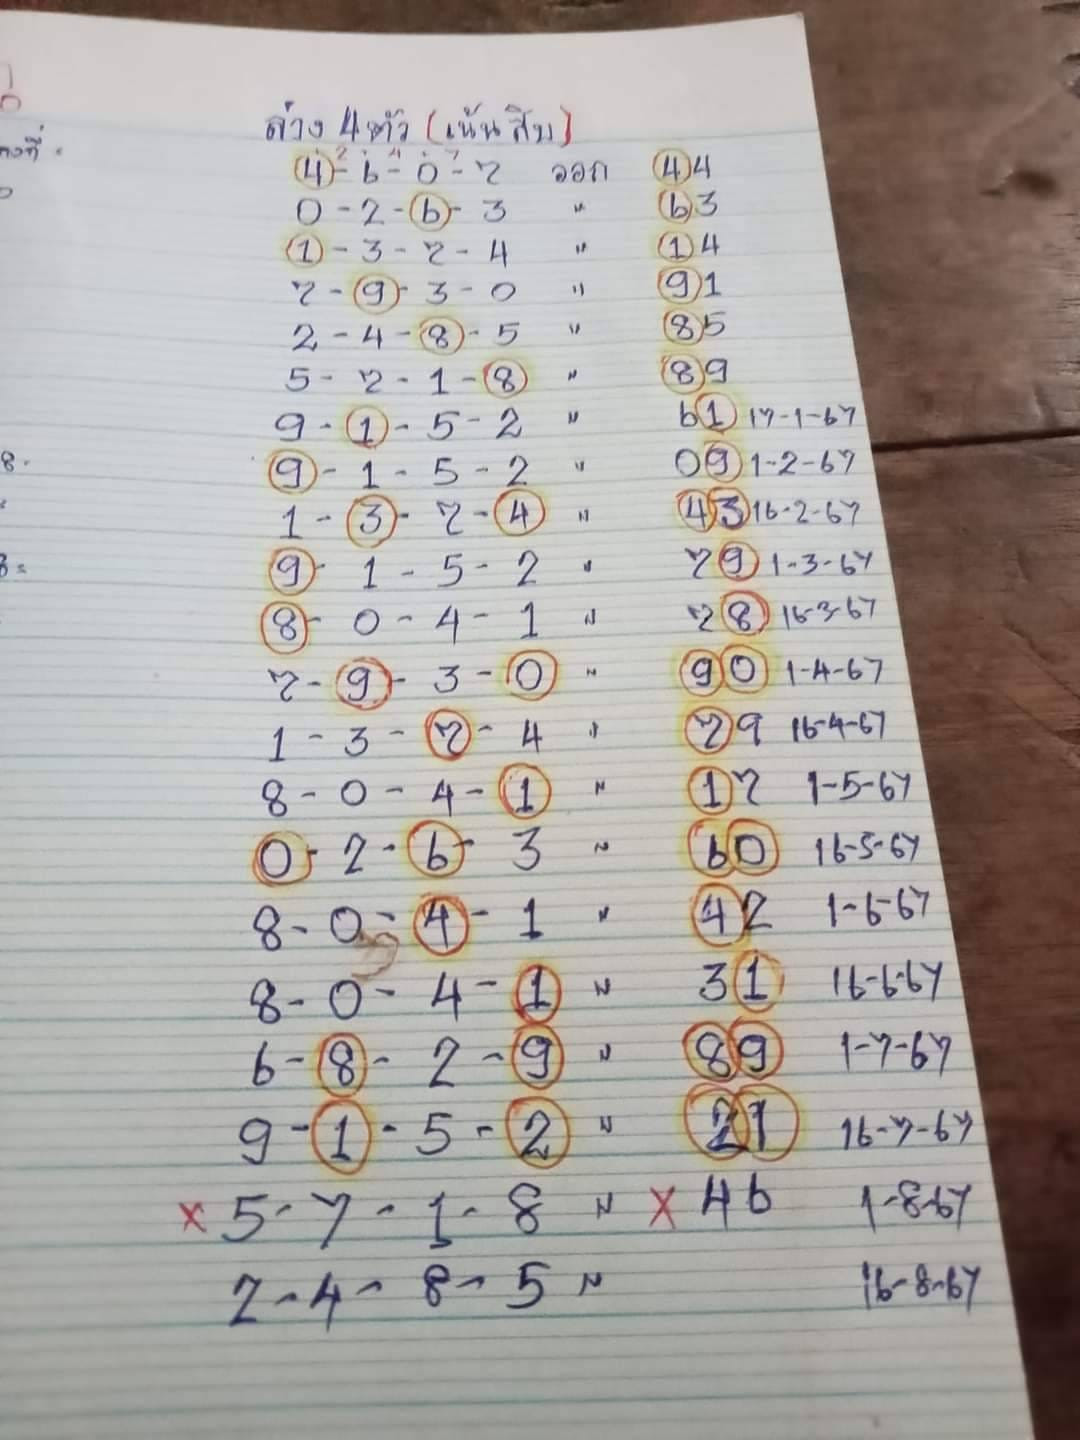 ล่าง 4 ตัว (เน้นสิบ)
4 - 6 - 0 - 7 ออก 44
0 - 2 - 6 - 3 " 63
1 - 3 - 7 - 4 " 14
7 - 9 - 3 - 0 " 91
2 - 4 - 8 - 5 " 85
5 - 7 - 1 - 8 " 89
9 - 1 - 5 - 2 " 61 17-1-67
9 - 1 - 5 - 2 " 09 1-2-67
1 - 3 - 7 - 4 " 43 16-2-67
9 - 1 - 5 - 2 " 79 1-3-67
8 - 0 - 4 - 1 " 78 16-3-67
7 - 9 - 3 - 0 " 90 1-4-67
1 - 3 - 7 - 4 " 79 16-4-67
8 - 0 - 4 - 1 " 17 1-5-67
0 - 2 - 6 - 3 " 60 16-5-67
8 - 0 - 4 - 1 " 42 1-6-67
8 - 0 - 4 - 1 " 31 16-6-67
6 - 8 - 2 - 9 " 89 1-7-67
9 - 1 - 5 - 2 " 21 16-7-67
x 5 - 7 - 1 - 8 " x 46 1-8-67
2 - 4 - 8 - 5 " 16-8-67